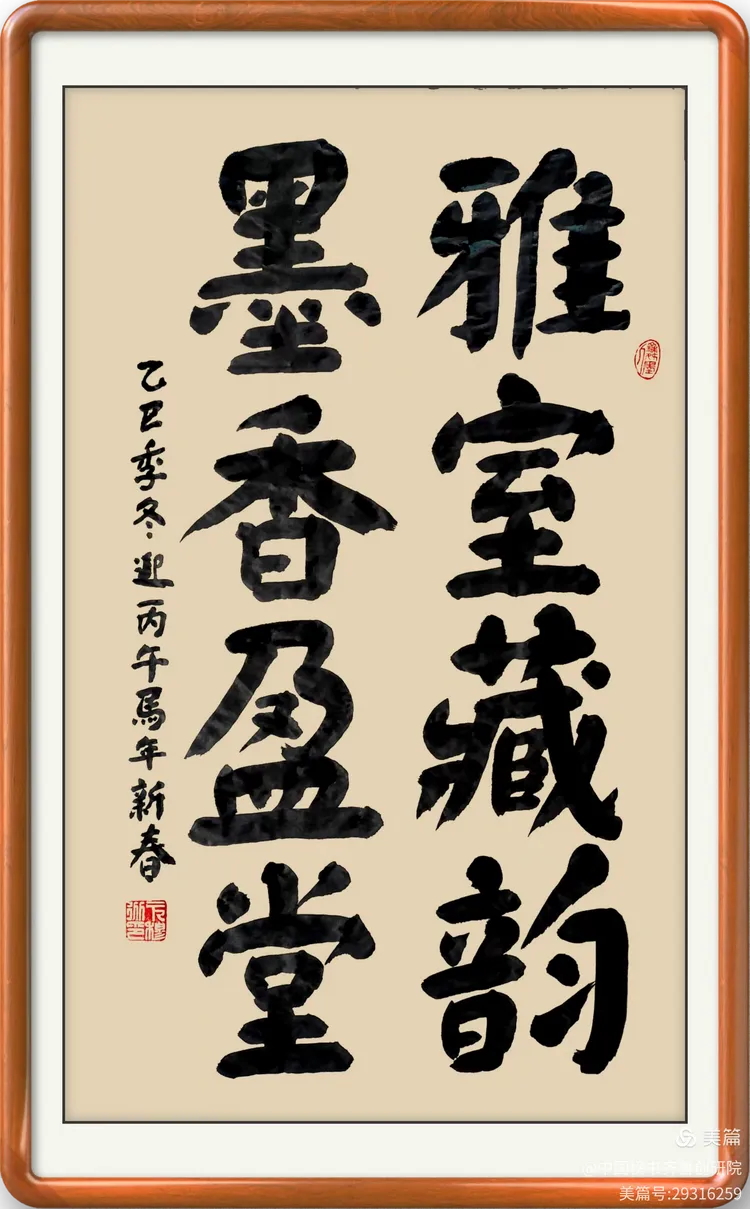 雅室藏韵
墨香盈堂
乙巳季冬迎丙午馬年新春
美篇
美篇号:29316259